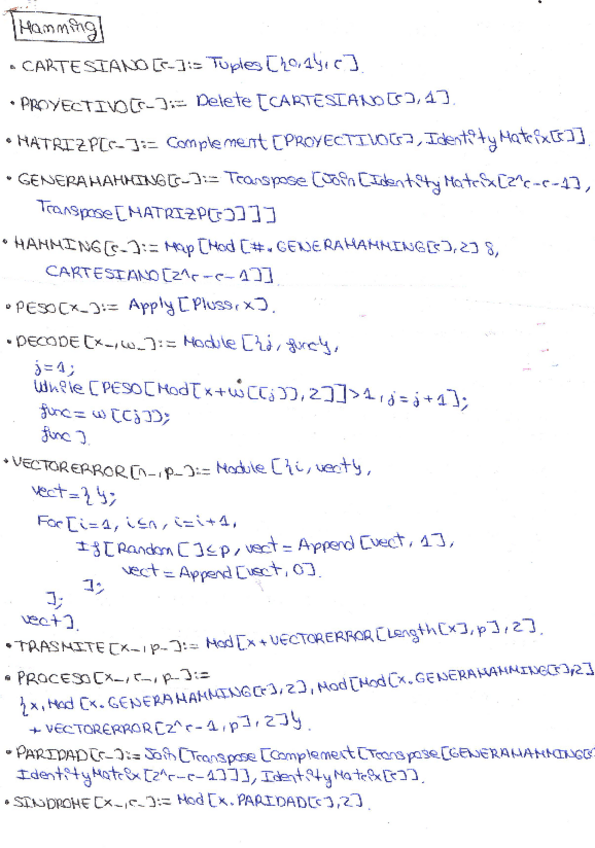 Hamming
• CARTESIANO[r_]:= Tuples[{0,1},r]
• PROYECTIVO[r_]:= Delete[CARTESIANO[r],1]
• MATRIZP[r_]:= Complement[PROYECTIVO[r],IdentityMatrix[r]]
• GENERAHAMMING[r_]:= Transpose[Join[IdentityMatrix[2^r-r-1],
Transpose[MATRIZP[r]]]]
• HAMMING[r_]:= Map[Mod[#.GENERAHAMMING[r],2]&,
CARTESIANO[2^r-r-1]]
• PESO[x_]:= Apply[Pluss,x].
• DECODE[x_,w_]:= Module[{j,func},
j=1;
While[PESO[Mod[x+w[[j]],2]]>1,j=j+1];
func=w[[j]];
func].
• VECTORERROR[n_,p_]:= Module[{i,vect},
vect={};
For[i=1,i≤n,i=i+1,
If[Random[]≤p,vect=Append[vect,1],
vect=Append[vect,0].
];
];
vect].
• TRASMITE[x_,p_]:= Mod[x+VECTORERROR[Length[x],p],2].
• PROCESO[x_,r_,p_]:=
{x,Mod[x.GENERAHAMMING[r],2],Mod[Mod[x.GENERAHAMMING[r],2]
+VECTORERROR[2^r-1,p],2]}.
• PARIDAD[r_]:= Join[Transpose[Complement[Transpose[GENERAHAMMING[r
IdentityMatrix[2^r-r-1]]],IdentityMatrix[r]].
• SINDROME[x_,r_]:= Mod[x.PARIDAD[r],2].